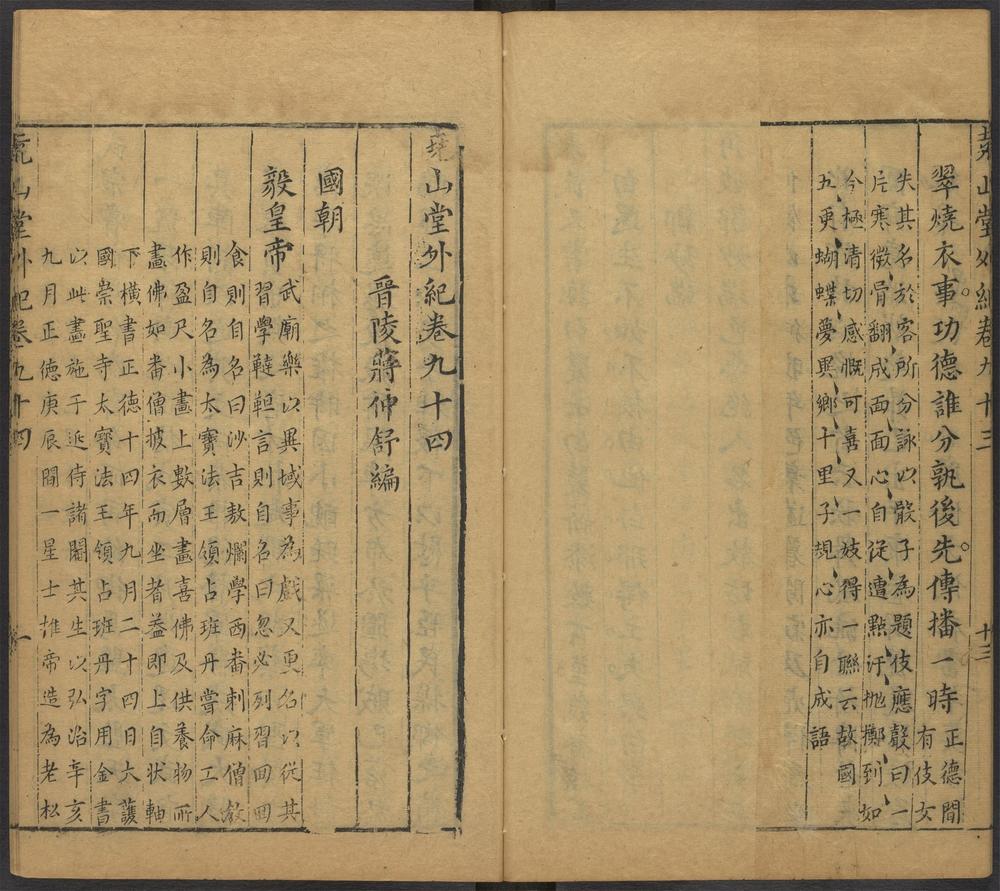 堯山堂外紀卷九十三　十三
翠燒衣事功德誰分孰後先傳播一時
正德間有伎女
失其名於客所分詠以骰子為題伎應聲曰一
片寒微骨翻成面面心自從遭點汙拋擲到如
今極清切感慨可喜又一妓得一聯云故國
五更蝴蝶夢異鄉十里子規心亦自成語
堯山堂外紀卷九十四
晉陵蔣仲舒編
國朝
毅皇帝
武廟樂以異域事為戲又更名以從其
習學韃靼言則自名曰忽必列習回回
食則自名曰沙吉敖爛學西番刺麻僧教
則自名為太寶法王領占班丹嘗命工人
作盈尺小畫上數層畫喜佛及供養物所
畫佛如番僧披衣而坐者益即上自狀軸
下橫書正德十四年九月二十四日大護
國崇聖寺太寶法王領占班丹字用金書
以此畫施于近侍諸閹其生以弘治辛亥
九月正德庚辰間一星士推帝造為老松
堯山堂外紀卷九十四　一